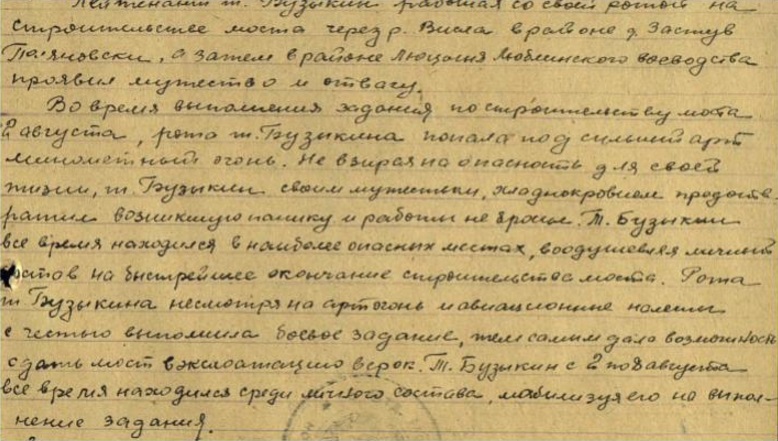 Лейтенант т. Бузыкин работая со своей ротой на
строительстве моста через р. Висла в районе д. Застув
Поляновски, а затем в районе Люцыня Люблинского воеводства
проявил мужество и отвагу.
Во время выполнения задания по строительству моста
2 августа, рота т. Бузыкина попала под сильный арт
минометный огонь. Не взирая на опасность для своей
жизни, т. Бузыкин своим мужеством, хладнокровием предотв-
ратил возникшую панику и работы не бросил. Т. Бузыкин
все время находился в наиболее опасных местах, воодушевляя личный
состав на быстрейшее окончание строительства моста. Рота
т. Бузыкина несмотря на артогонь и авиационные налеты
с честью выполнила боевое задание, тем самым дало возможность
сдать мост в эксплоатацию в срок. Т. Бузыкин с 2 по 8 августа
все время находился среди личного состава, мобилизуя его на выпол-
нение задания.